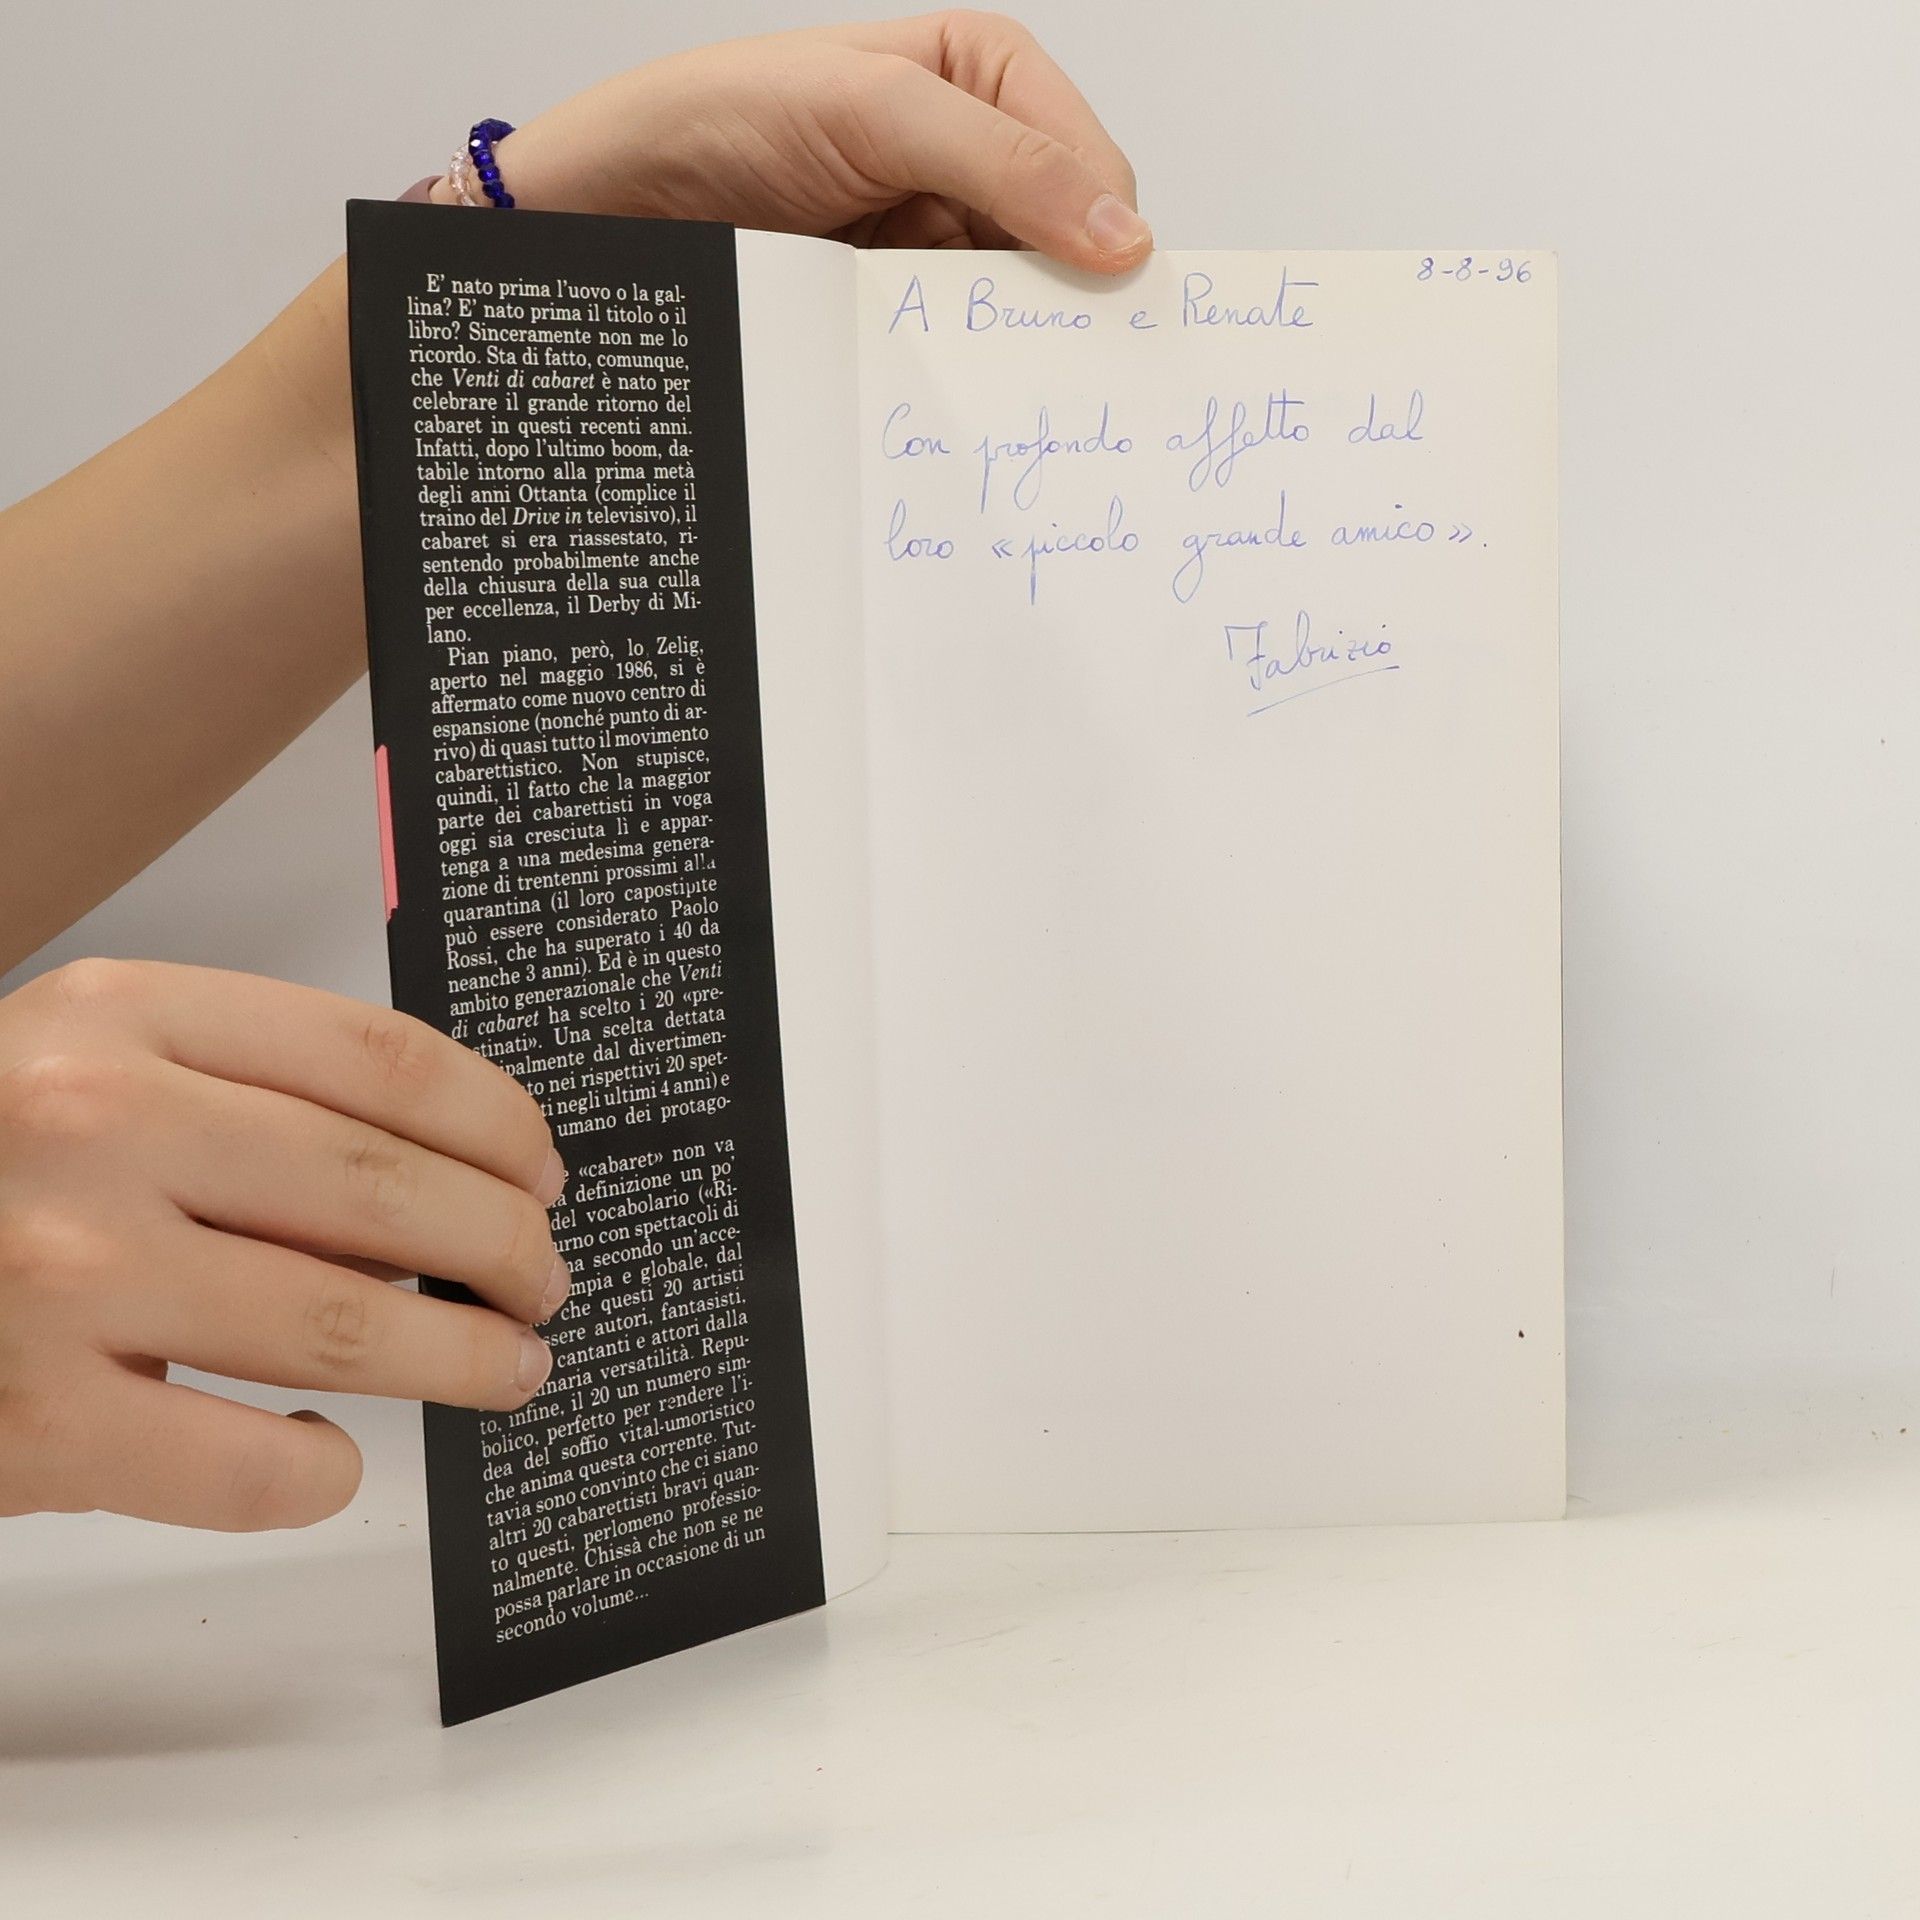 E' nato prima l'uovo o la gal-
lina? E' nato prima il titolo o il
libro? Sinceramente non me lo
ricordo. Sta di fatto, comunque,
che Venti di cabaret è nato per
celebrare il grande ritorno del
cabaret in questi recenti anni.
Infatti, dopo l'ultimo boom, da-
tabile intorno alla prima metà
degli anni Ottanta (complice il
traino del Drive in televisivo), il
cabaret si era riassestato, ri-
sentendo probabilmente anche
della chiusura della sua culla
per eccellenza, il Derby di Mi-
lano.
Pian piano, però, lo Zelig,
aperto nel maggio 1986, si è
affermato come nuovo centro di
espansione (nonché punto di ar-
rivo) di quasi tutto il movimento
cabarettistico. Non stupisce,
quindi, il fatto che la maggior
parte dei cabarettisti in voga
oggi sia cresciuta lì e appar-
tenga a una medesima genera-
zione di trentenni prossimi alla
quarantina (il loro capostipite
può essere considerato Paolo
Rossi, che ha superato i 40 da
neanche 3 anni). Ed è in questo
ambito generazionale che Venti
di cabaret ha scelto i 20 «pre-
stinati». Una scelta dettata
palmente dal divertimen-
to nei rispettivi 20 spet-
ti negli ultimi 4 anni) e
umano dei protago-
«cabaret» non va
definizione un po'
del vocabolario («Ri-
urno con spettacoli di
secondo un'acce-
mpia e globale, dal
che questi 20 artisti
ssere autori, fantasisti,
cantanti e attori dalla
inaria versatilità. Repu-
to, infine, il 20 un numero sim-
bolico, perfetto per rendere l'i-
dea del soffio vital-umoristico
che anima questa corrente. Tut-
tavia sono convinto che ci siano
altri 20 cabarettisti bravi quan-
to questi, perlomeno professio-
nalmente. Chissà che non se ne
possa parlare in occasione di un
secondo volume...
8-8-96
A Bruno e Renate
Con profondo affetto dal
loro «piccolo grande amico».
Fabrizio